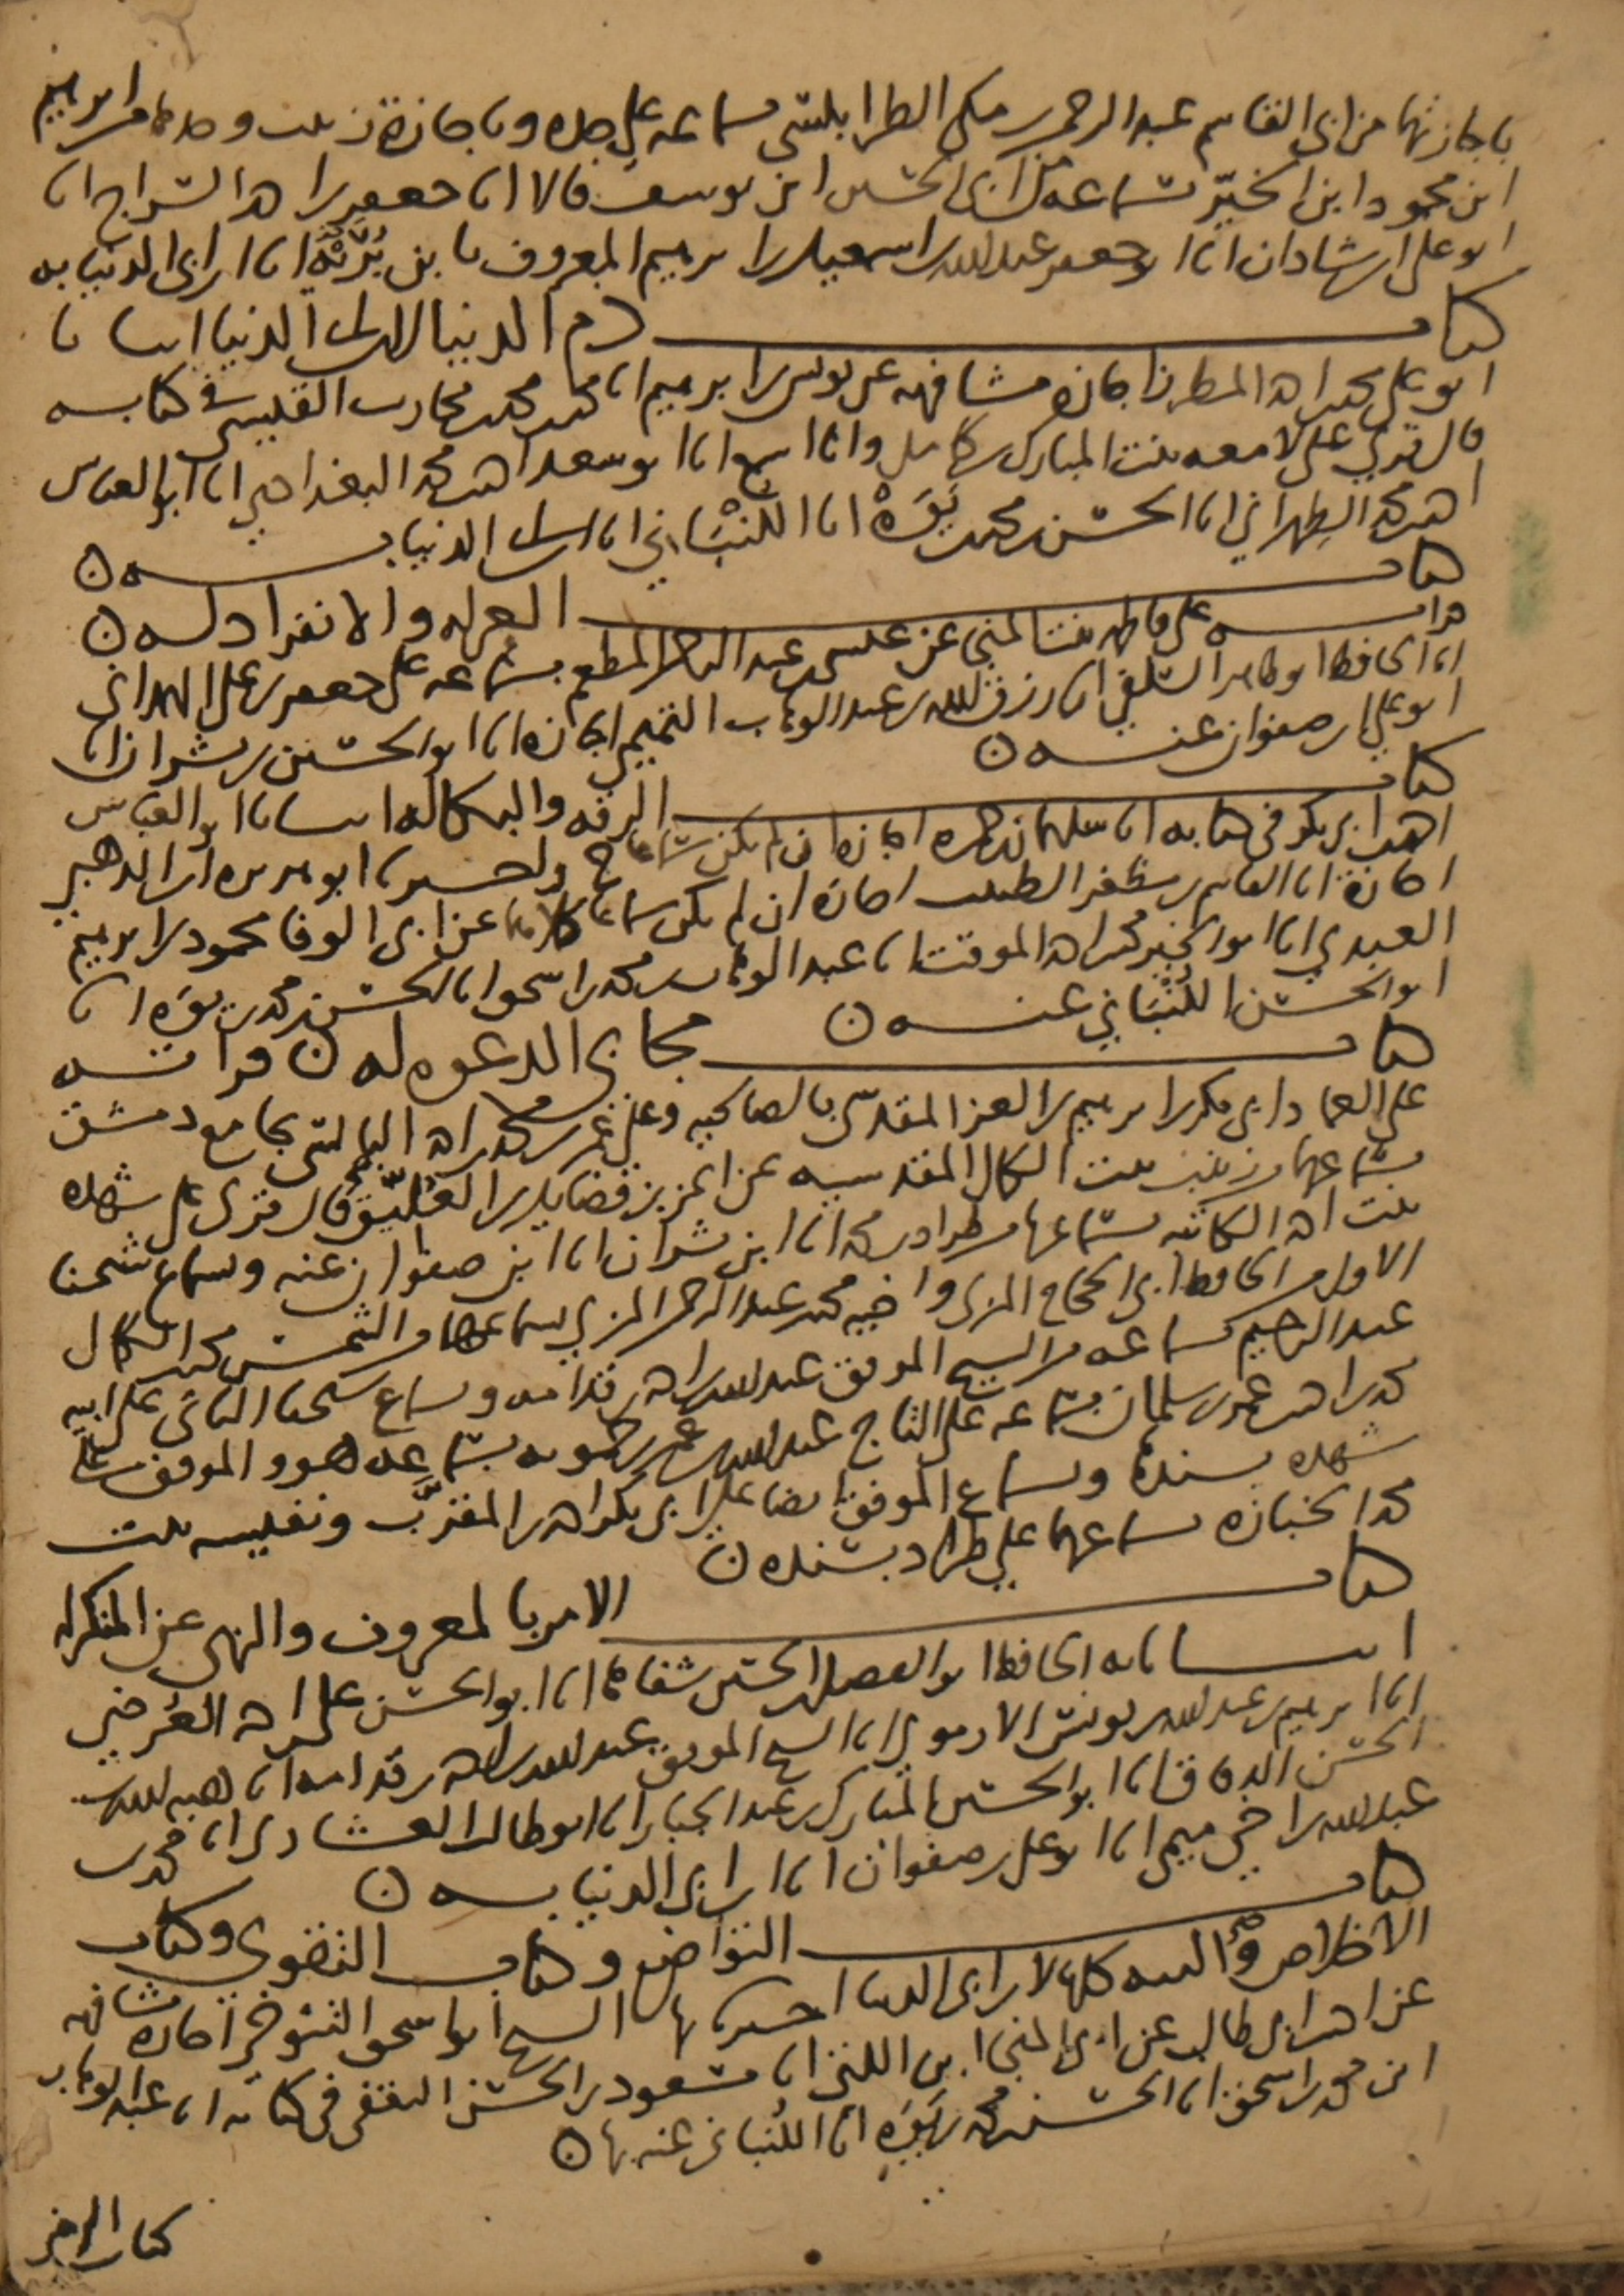 باجازتها من ابي القاسم عبد الرحمن بن مكي الطرابلسي بسماعه على جده وباجازة زينب وحدها من ابرهيم
ابن محمود ابن الخير بسماعه من ابي الحسين ابن يوسف قالا انا جعفر بن احمد السراج انا
ابو علي بن شاذان انا ابو جعفر عبد الله بن اسمعيل بن ابرهيم المعروف بابن بُرَيْه انا ابن ابي الدنيا به
كتاب ذم الدنيا لابن ابي الدنيا انبانا
ابو علي محمد بن احمد المطرز اجازة مشافهة عن يونس بن ابرهيم انا محمد بن محمد بن محارب القيسي في كتابه
قال قرئ على لامعه بنت المبارك بن كامل وانا اسمع انا ابو سعد احمد بن محمد البغدادي انا ابو العباس
احمد بن محمد الطهراني انا الحسن بن محمد بن يَوَه انا اللُنْبَاني انا ابن ابي الدنيا به
كتاب العزله والانفراد له
قراته على فاطمه بنت المنجى عن عيسى بن عبد الرحمن المطعم بسماعه على جعفر بن علي الهمداني
انا الحافظ ابو طاهر السلفي انا رزق الله بن عبد الوهاب التميمي اجازه انا ابو الحسين بن بشران انا
ابو علي بن صفوان عنه
كتاب الرقه والبكا له انبانا ابو العباس
احمد بن ابي بكر في كتابه انا سليمان بن حمزه اجازه ان لم يكن سماعا ح واخبرنا ابو هريره ابن الذهبي
اجازة انا القاسم بن مظفر الطبيب اجازة ان لم يكن سماعا كلاهما عن ابي الوفا محمود بن ابرهيم
العبدي انا ابو الخير محمد بن احمد الموقت انا عبد الوهاب بن محمد بن اسحق انا الحسن بن محمد بن يَوَه انا
ابو الحسن اللُنْبَاني عنه
كتاب مجابي الدعوه له قراته
على العماد ابي بكر بن ابرهيم بن العز المقدسي بالصالحيه وعلى عمر بن محمد بن احمد البالسي بجامع دمشق
بسماعهما من زينب بنت الكمال المقدسيه عن اعز بن فضايل بن العُلّيق قال قرئ على شهده
بنت احمد الكاتبه بسماعها من طراد بن محمد انا ابن بشران انا ابن صفوان عنه وسماع شيخنا
الاول من الحافظ ابي الحجاج المزي واخيه محمد بن عبد الرحمن المزي بسماعهما من الشمس محمد بن الكمال
عبد الرحيم بسماعه من الشيخ الموفق عبد الله بن احمد بن قدامه وسماع شيخنا الثاني على ابيه
محمد بن احمد بن عمر بن سلمان بسماعه على التاج عبد الله بن عمر بن حمويه بسماعه هو والموفق على
شهده بسنده وسماع الموفق ايضا على ابي بكر احمد بن المقرَّب ونفيسه بنت
محمد الخبازه بسماعهما على طراد بسنده
كتاب الامر بالمعروف والنهي عن المنكر له
انبانا به الحافظ ابو الفضل بن الحسين شفاها انا ابو الحسن علي بن احمد العُرضي
انا ابرهيم بن عبد الله بن يونس الارموي انا الشيخ الموفق عبد الله بن احمد بن قدامه انا هبه الله بن
الحسن الدقاق انا ابو الحسين المبارك بن عبد الجبار انا ابو طالب العشاري انا محمد بن
عبد الله بن اخي ميمي انا ابو علي بن صفوان انا ابن ابي الدنيا به
كتاب التواضع وكتاب التقوى وكتاب
الاخلاص والنيه كلها لابن ابي الدنيا اخبرنا بها الشيخ ابو اسحق التنوخي اجازة مشافهه
عن احمد بن ابي طالب عن ابي المنجا ابن اللتي انا مسعود بن الحسن الثقفي في كتابه انا عبد الوهاب
ابن محمد بن اسحق انا الحسن بن محمد بن يَوَه انا اللُنباني عنه بها
كتاب